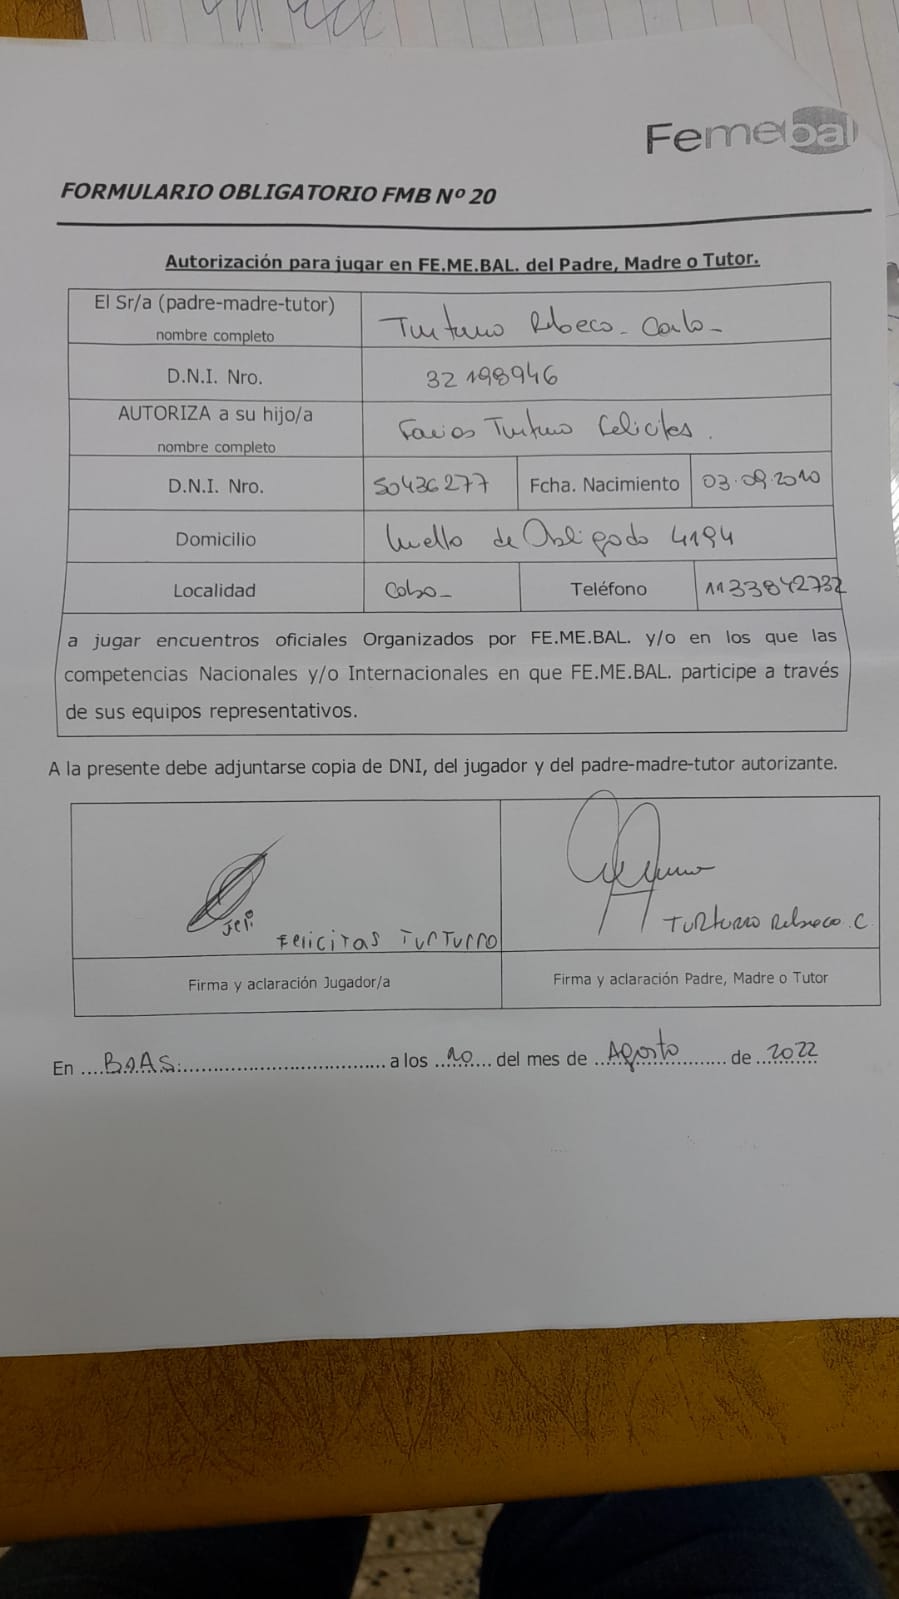 Femebal
FORMULARIO OBLIGATORIO FMB Nº 20
Autorización para jugar en FE.ME.BAL. del Padre, Madre o Tutor.
El Sr/a (padre-madre-tutor)
nombre completo
Turturro Rebeca - Carla -
D.N.I. Nro.
32198946
AUTORIZA a su hijo/a
nombre completo
Farias Turturro Felicitas.
D.N.I. Nro.
50436277
Fcha. Nacimiento
03.09.2010
Domicilio
Vuelta de Obligado 4194
Localidad
Caba -
Teléfono
1133842732
a jugar encuentros oficiales Organizados por FE.ME.BAL. y/o en los que las
competencias Nacionales y/o Internacionales en que FE.ME.BAL. participe a través
de sus equipos representativos.
A la presente debe adjuntarse copia de DNI, del jugador y del padre-madre-tutor autorizante.
Feli
Felicitas Turturro
Turturro Rebeca. C
Firma y aclaración Jugador/a
Firma y aclaración Padre, Madre o Tutor
En .... BsAs. .... a los .. 10 .. del mes de .. Agosto .. de .. 2022